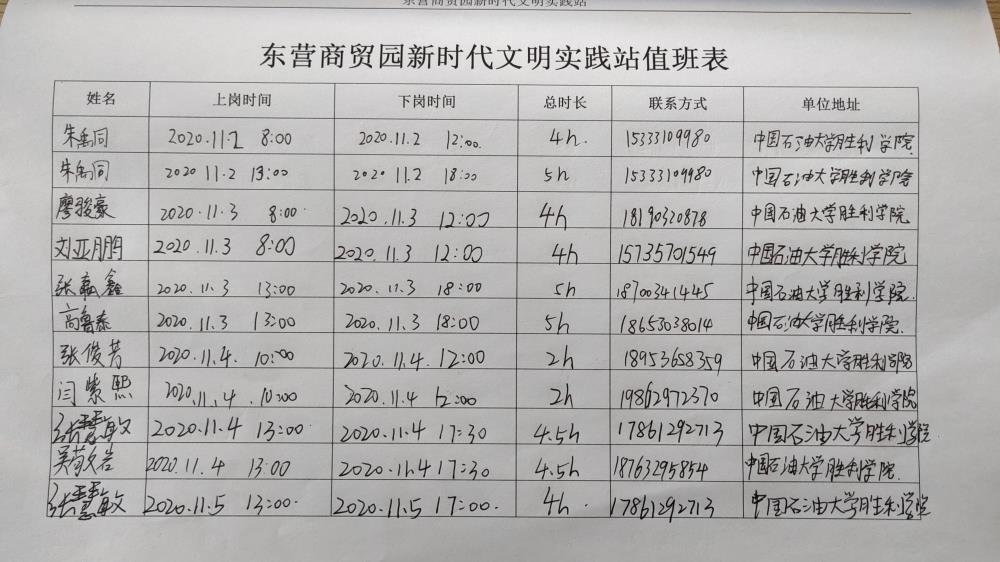 东营商贸园新时代文明实践站
东营商贸园新时代文明实践站值班表
姓名 上岗时间 下岗时间 总时长 联系方式 单位地址
朱禹同 2020.11.2 8:00 2020.11.2 12:00. 4h. 15333109980 中国石油大学胜利学院
朱禹同 2020 11.2 13:00 2020 11.2 18:00 5h 15333109980 中国石油大学胜利学院
廖骏豪 2020.11.3 8:00 2020.11.3 12:00 4h 18190320878 中国石油大学胜利学院
刘亚月鹏 2020.11.3 8:00 2020.11.3 12:00 4h 15735701549 中国石油大学胜利学院
张鑫 2020.11.3 13:00 2020.11.3 18:00 5h 18700341445 中国石油大学胜利学院.
高鲁泰 2020.11.3 13:00 2020.11.3 18:00 5h 18653038014 中国石油大学胜利学院.
张俊芳 2020.11.4. 10:00 2020.11.4. 12:00 2h 18953658359 中国石油大学胜利学院
闫紫熙 2020.11.4 .10:00 2020.11.4 12:00 2h 19862972370 中国石油大学胜利学院
张慧敏 2020.11.4 13:00. 2020.11.4 17:30 4.5h 17861292713 中国石油大学胜利学院
吴岩 2020.11.4 13:00 2020.11.4 17:30 4.5h 18763295854 中国石油大学胜利学院.
张慧敏 2020.11.5 13:00. 2020.11.5 17:00. 4h 17861292713 中国石油大学胜利学院